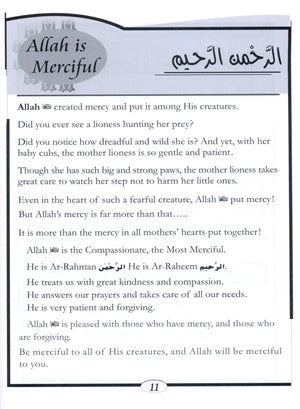 Allah is
Merciful
الرَّحْمٰنِ الرَّحِيمِ
Allah ﷻ created mercy and put it among His creatures.
Did you ever see a lioness hunting her prey?
Did you notice how dreadful and wild she is? And yet, with her
baby cubs, the mother lioness is so gentle and patient.
Though she has such big and strong paws, the mother lioness takes
great care to watch her step not to harm her little ones.
Even in the heart of such a fearful creature, Allah ﷻ put mercy!
But Allah’s mercy is far more than that…..
It is more than the mercy in all mothers’ hearts put together!
Allah ﷻ is the Compassionate, the Most Merciful.
He is Ar-Rahman الرَّحْمٰن He is Ar-Raheem الرَّحِيم.
He treats us with great kindness and compassion.
He answers our prayers and takes care of all our needs.
He is very patient and forgiving.
Allah ﷻ is pleased with those who have mercy, and those who
are forgiving.
Be merciful to all of His creatures, and Allah will be merciful
to you.
11